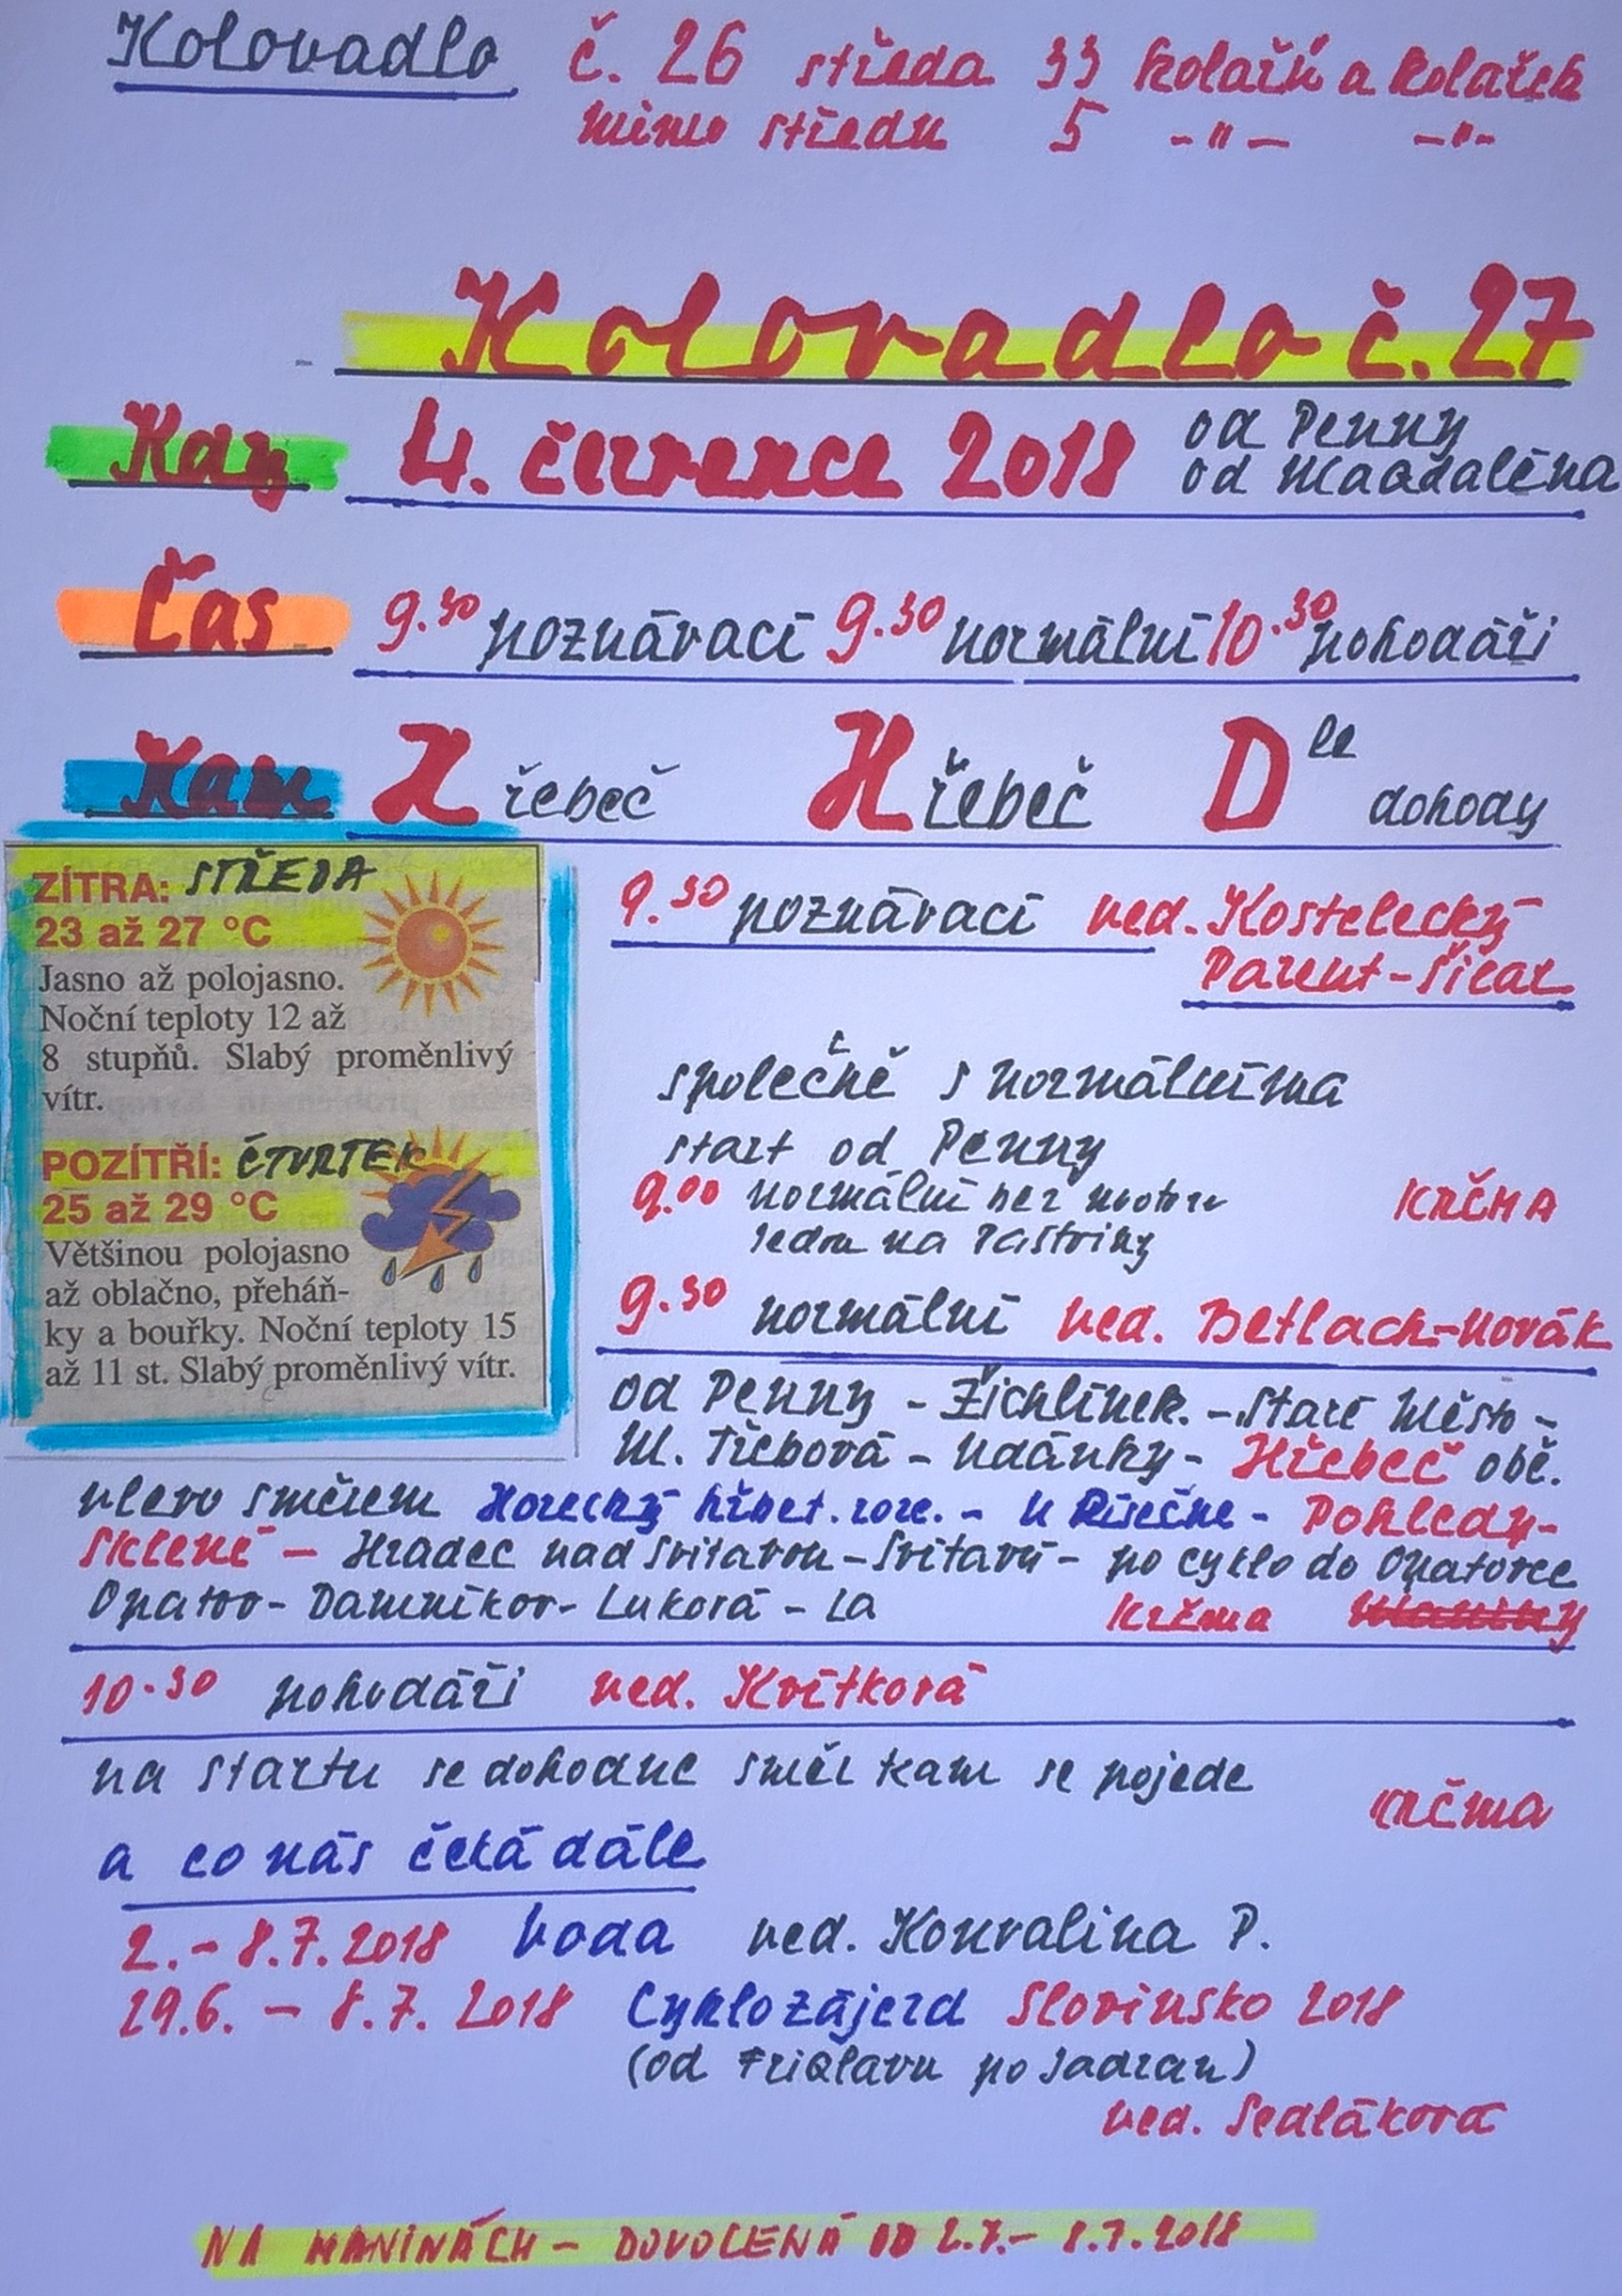 Kolovadlo č. 26 středa 33 kolařů a kolařek
mimo středu 5 -"- -"-
Kolovadlo č. 27
Kdy 4. července 2018 od Penny
od Magdaléna
Čas 9.30 poznávací 9.30 normální 10.30 pohodáři
Kam Hřebeč Hřebeč Dle dohody
ZÍTRA: STŘEDA
23 až 27 °C
Jasno až polojasno.
Noční teploty 12 až
8 stupňů. Slabý proměnlivý
vítr.
POZÍTŘÍ: ČTVRTEK
25 až 29 °C
Většinou polojasno
až oblačno, přeháň-
ky a bouřky. Noční teploty 15
až 11 st. Slabý proměnlivý vítr.
9.30 poznávací ved. Kostelecký
Parent-Šicar
společně s normálníma
start od Penny
9.00 normální bez motoru KRČMA
jedou na Paštviny
9.30 normální ved. Betlach-Novák
od Penny - Žichlínek. - Staré Město -
M. Třebová - Udánky - Hřebeč obč.
vlevo směrem Horecký hřbet. roze. - U Písečné - Pohledy -
Sklené - Hradec nad Svitavou - Svitavy - po cyklo do Opatovce
Opatov - Damníkov - Luková - La Krčma
10.30 pohodáři ved. Kvítková
na startu se dohodne směr kam se pojede
krčma
a co nás čeká dále
2.-8.7.2018 Voda ved. Konvalina P.
29.6. - 8.7. 2018 Cyklozájezd Slovinsko 2018
(od Triglavu po Jadran)
ved. Sedláková
NA MANINÁCH - DOVOLENÁ OD 2.7.- 8.7.2018